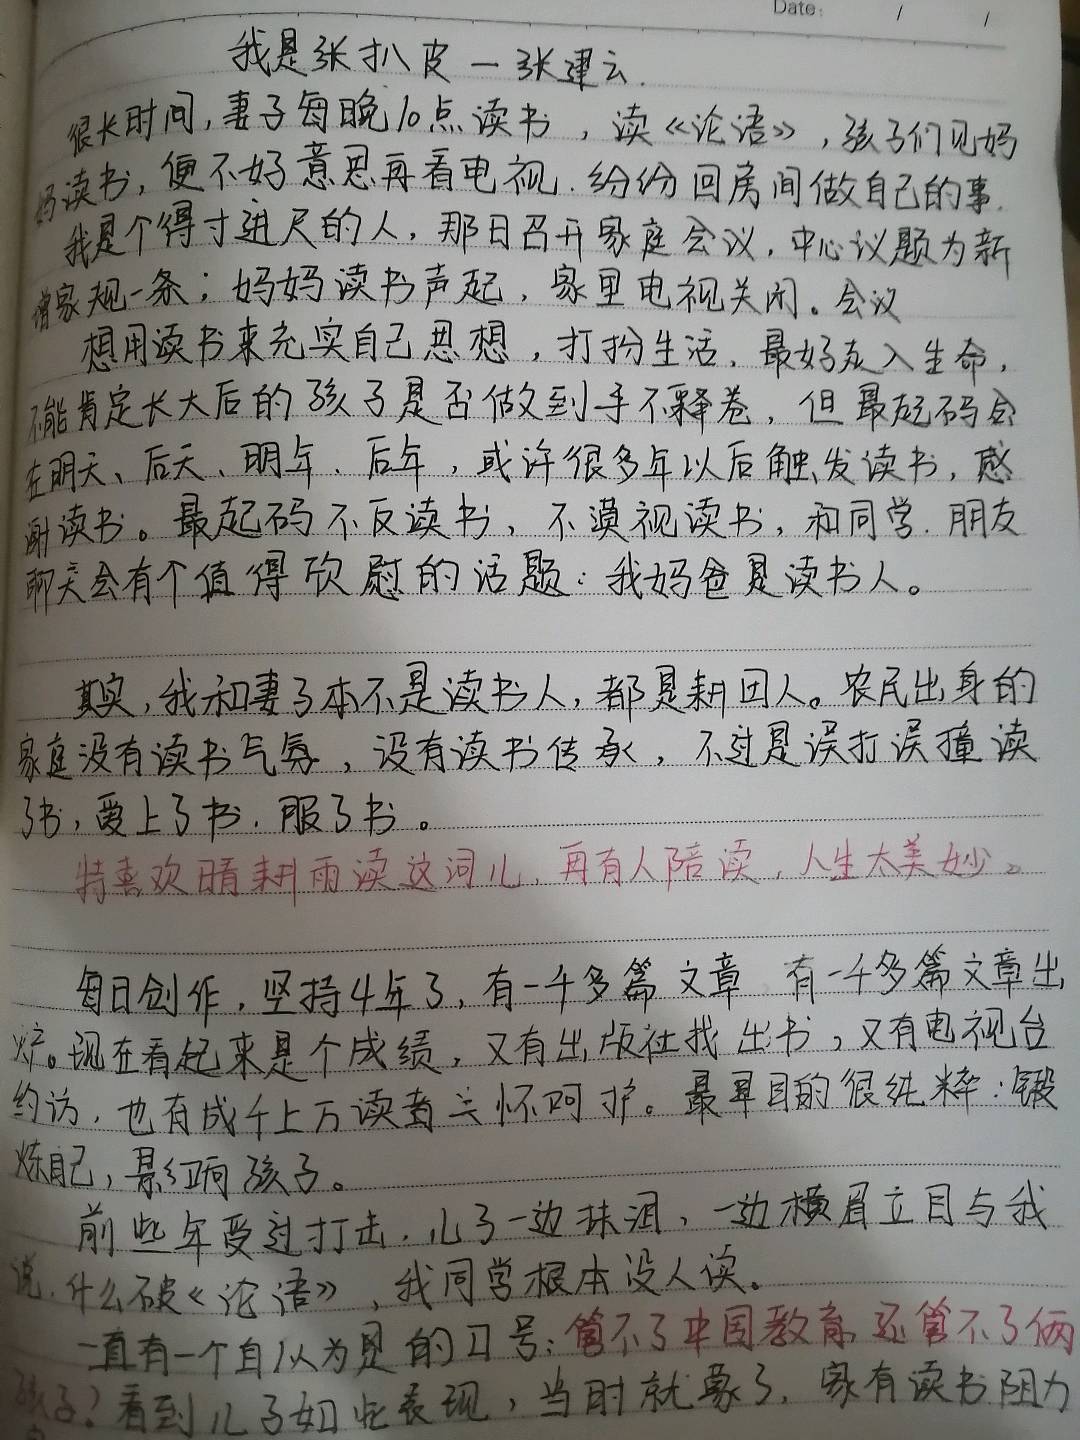 Date: / /
我是张扒皮一张建云.
很长时间,妻子每晚10点读书,读《论语》,孩子们见妈
妈读书,便不好意思再看电视.纷纷回房间做自己的事.
我是个得寸进尺的人,那日召开家庭会议,中心议题为新
增家规一条;妈妈读书声起,家里电视关闭。会议
想用读书来充实自己思想,打扮生活,最好友入生命,
不能肯定长大后的孩子是否做到手不释卷,但最起码会
在明天、后天、明年、后年,或许很多年以后触发读书,感
谢读书。最起码不反读书,不漠视读书,和同学.朋友
聊天会有个值得欣慰的话题:我妈爸是读书人。
其实,我和妻子本不是读书人,都是耕田人。农民出身的
家庭没有读书气氛,没有读书传承,不过是误打误撞读
了书,爱上了书.服了书。
特喜欢晴耕雨读这词儿,再有人陪读,人生太美妙。
每日创作,坚持4年了,有一千多篇文章 有一千多篇文章出
炉。现在看起来是个成绩,又有出版社找出书,又有电视台
约访,也有成千上万读者关怀呵护。最早目的很纯粹:锻
炼自己,影响孩子。
前些年受过打击.儿子一边抹泪,一边横眉立目与我
说.什么破《论语》,我同学根本没人读。
一直有一个自以为是的口号:管不了中国教育还管不了俩
孩子?看到儿子如此表现,当时就蒙了.家有读书阻力